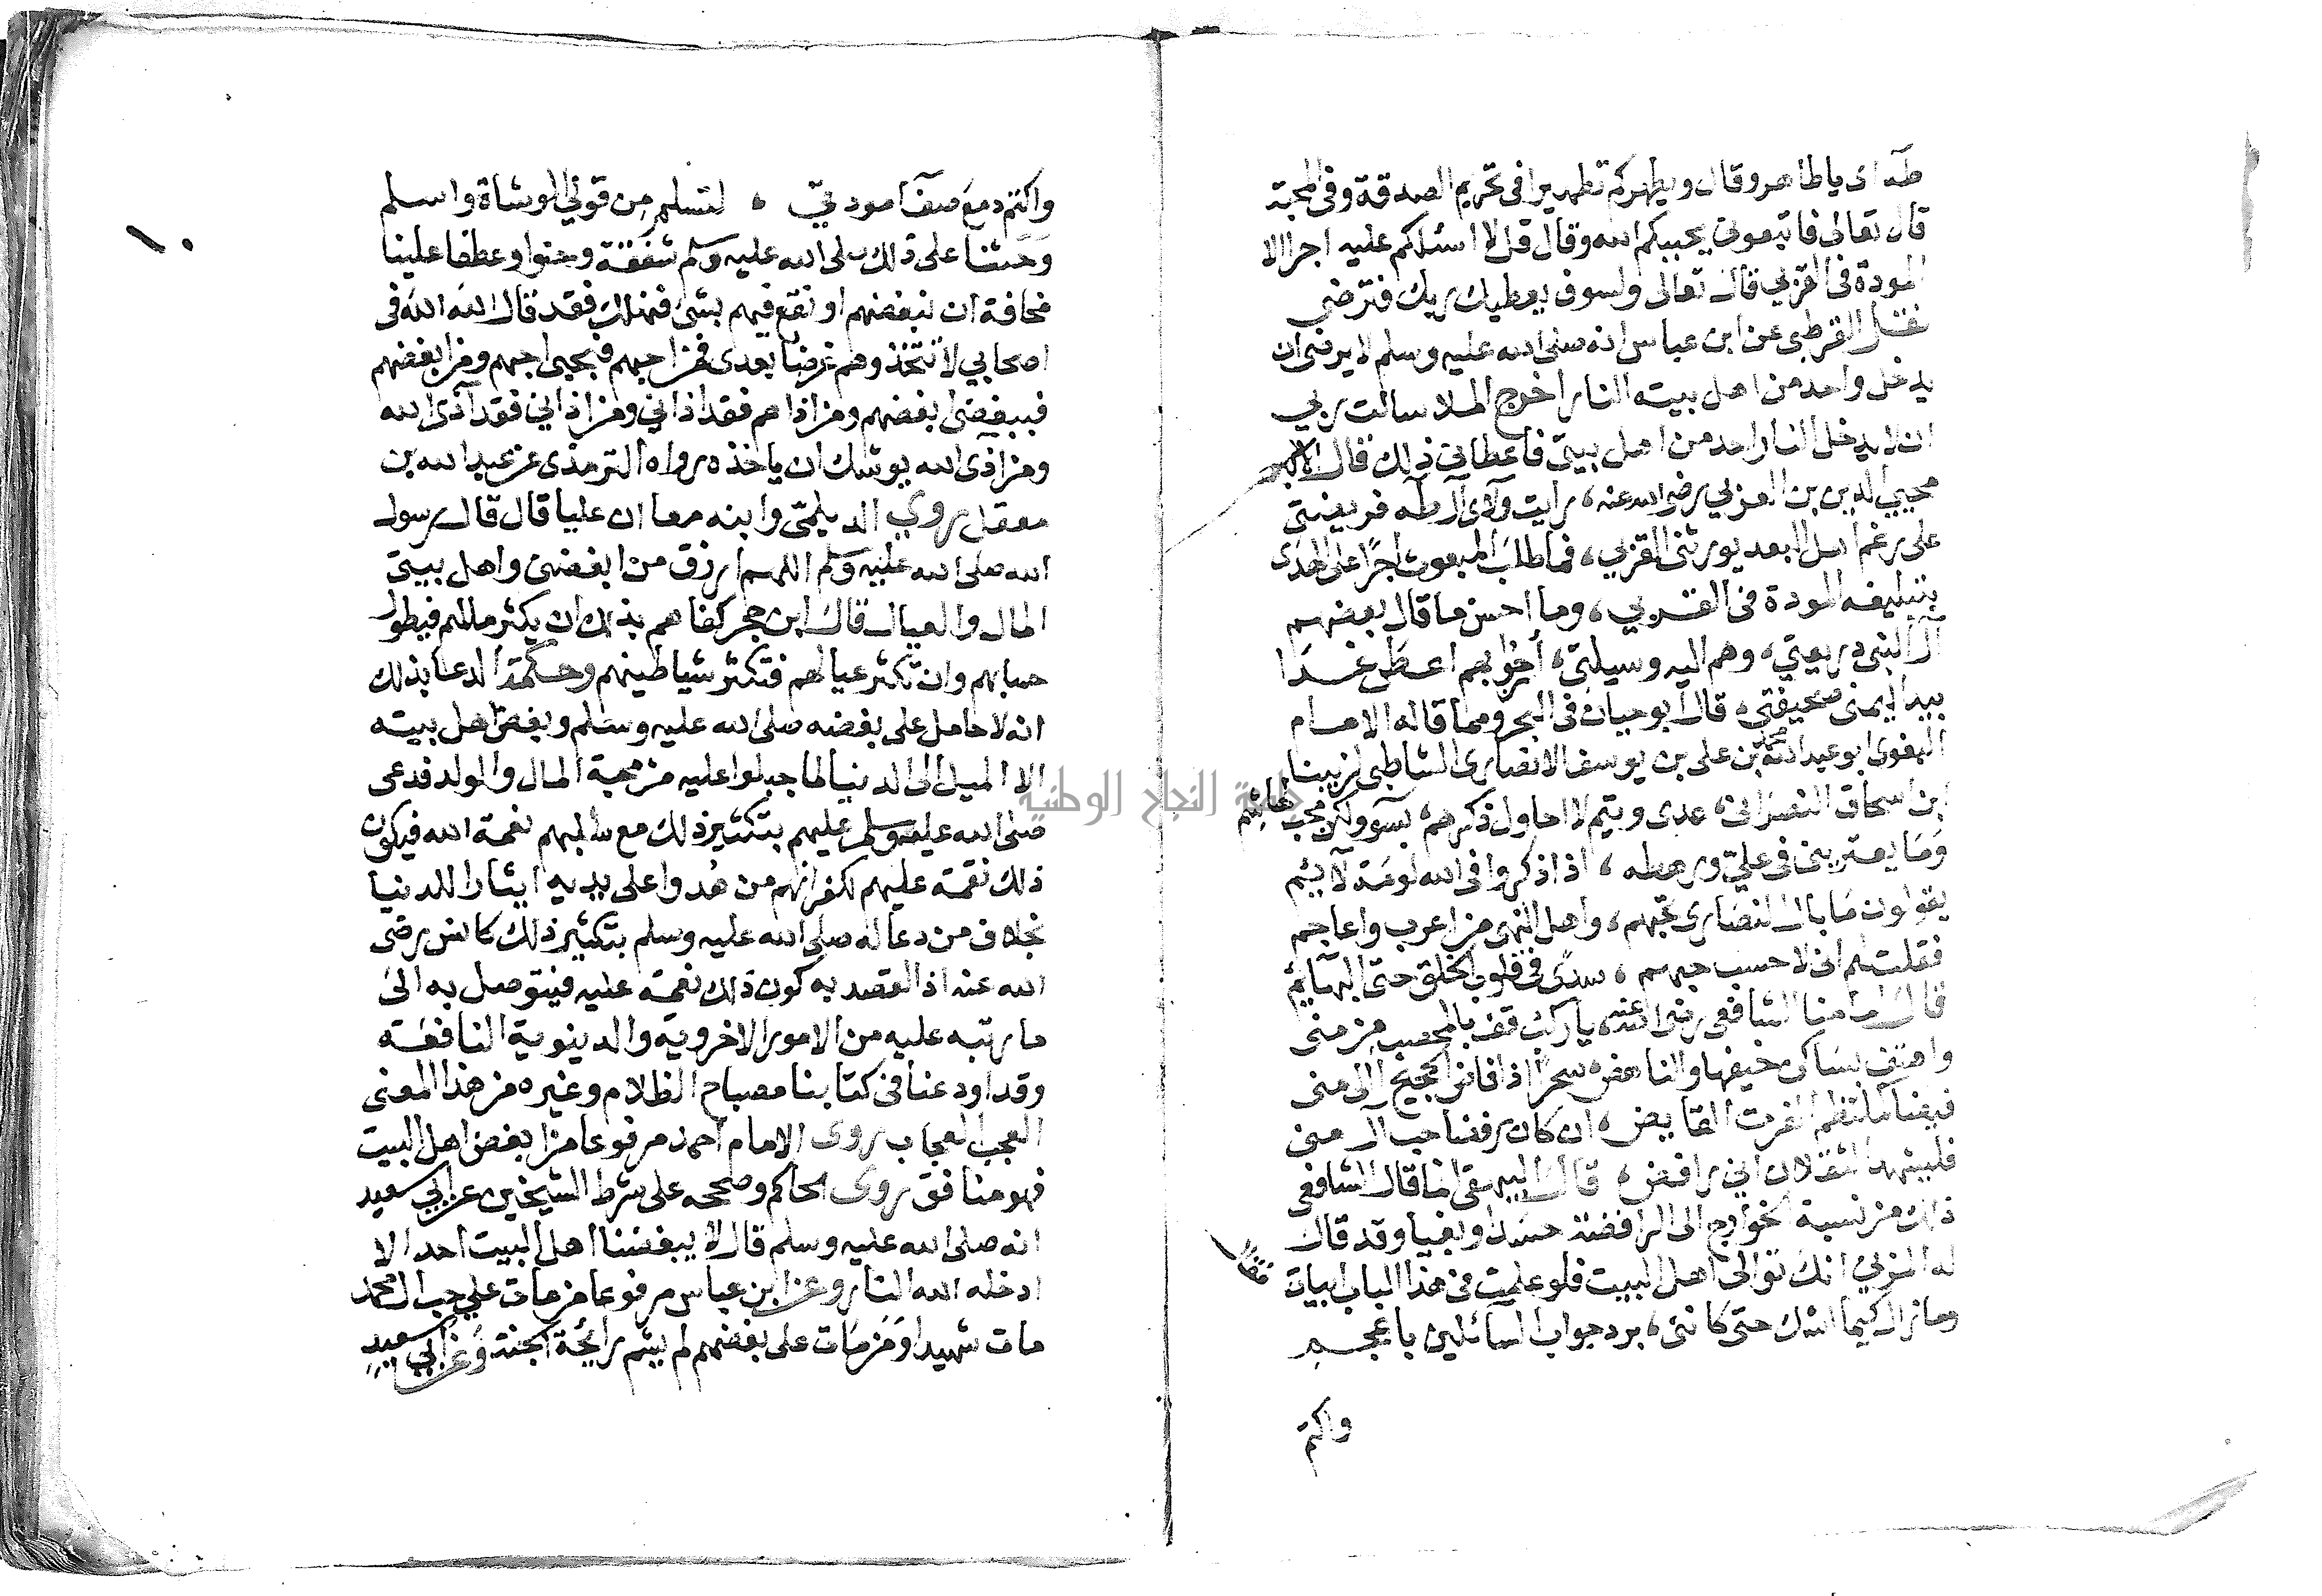 طه اى يا طاهر وقال ويطهركم تطهيرا فى تحريم الصدقة وفى المحبة
قال تعالى فاتبعونى يحببكم الله وقال قل لا اسئلكم عليه اجرا الا
المودة فى القربى قال تعالى ولسوف يعطيك ربك فترضى
نقل القرطبى عن ابن عباس انه صلى الله عليه وسلم لا يرضى ان
يدخل واحد من اهل بيته النار اخرج الملا سالت ربى
ان لا يدخل النار احد من اهل بيتى فاعطانى ذلك قال الاكبر
محيى الدين بن العربى رضى الله عنه، رايت ولاى آل طه فريضتى
على رغم اهل البعد يورثنى القربى، فما طلب المبعوث اجرا على الهدى
بتبليغه المودة فى القربى، وما احسن ما قال بعضهم
آل النبى ذريعتى، وهم اليه وسيلتى، أرجوا بهم اعطى غدا
بيد اليمنى صحيفتى، قال ابو حيان فى البحر ومما قاله الامام
اللغوى ابو عبد الله محمد بن على بن يوسف الانصارى الشاطبى لزبينا
ابن اسحاق النصرانى، عدى وتيم لا احاول ذكرهم، بسوء ولكن محب لهاشم
وما يعترينى فى على ورهطه، اذا ذكروا فى الله لومة لايئم
يقولون ما بال النصارى تحبهم، واهل النهى من اعرب واعاجم
فقلت لهم انى لاحسب حبهم، سرى فى قلوب الخلق حتى البهايئم
قال امامنا الشافعى رضى الله عنه، يا راكبا قف بالمحصب من منى
واهتف بساكن خيفها والناهض، سحرا اذا فاض الحجيج الى منى
فيضا كملتطم الفرات الفايض، ان كان رفضا حب آل محمد
فليشهد الثقلان انى رافضى، قال البيهقى انما قال الشافعى
ذلك من نسبة الخوارج الى الرافضة حسدا وبغيا وقد قال
له المزنى انك توالى اهل البيت فلو علمت فى هذا الباب ابيات
فقال
وما زال كتما منك حتى كاننى، برد جواب السائلين باعجم
واكتم
١٠
واكتم ودى مع صفآ مودتى، لتسلم من قول الوشاة واسلم
وحثنا على ذلك صلى الله عليه وسلم شفقة وحنوا وعطفا علينا
مخافة ان نبغضهم او نقع فيهم بشئ فنهلك فقد قال الله الله فى
اصحابى لا تتخذوهم غرضا بعدى فمن احبهم فبحبى احبهم ومن ابغضهم
فببغضى ابغضهم ومن اذاهم فقد اذانى ومن اذانى فقد آذى الله
ومن اذى الله يوشك ان ياخذه رواه الترمذى عن عبد الله بن
معقل روى الديلمى وابنه معا ان عليا قال قال رسول
الله صلى الله عليه وسلم اللهم ارزق من ابغضنى واهل بيتى
المال والعيال قال ابن حجر كفاهم بذلك ان يكثر مالهم فيطول
حسابهم وان تكثر عيالهم فتكثر شياطينهم وحكمة الدعا بذلك
انه لا حامل على بغضه صلى الله عليه وسلم وبغض اهل بيته
الا الميل الى الدنيا لما جبلوا عليه من محبة المال والولد فدعى
صلى الله عليه وسلم عليهم بتكثير ذلك مع سلبهم نعمة الله فيكون
ذلك نقمة عليهم لكفرانهم من هدوا على يديه ايثارا للدنيا
بخلاف من دعا له صلى الله عليه وسلم بتكثير ذلك كانس رضى
الله عنه اذ القصد به كون ذلك نعمة عليه فيتوصل به الى
ما رتبه عليه من الامور الاخروية والدينوية النافعة
وقد اودعنا فى كتابنا مصباح الظلام وغيره من هذا المعنى
العجب العجاب روى الامام احمد مرفوعا من ابغض اهل البيت
فهو منافق روى الحاكم وصححه على شرط الشيخين عن ابى سعيد
انه صلى الله عليه وسلم قال لا يبغضنا اهل البيت احد الا
ادخله الله النار وعن ابن عباس مرفوعا من مات على حب آل محمد
مات شهيدا ومن مات على بغضهم لم يشم رايحة الجنة وعن ابى سعيد
جامعة النجاح الوطنية